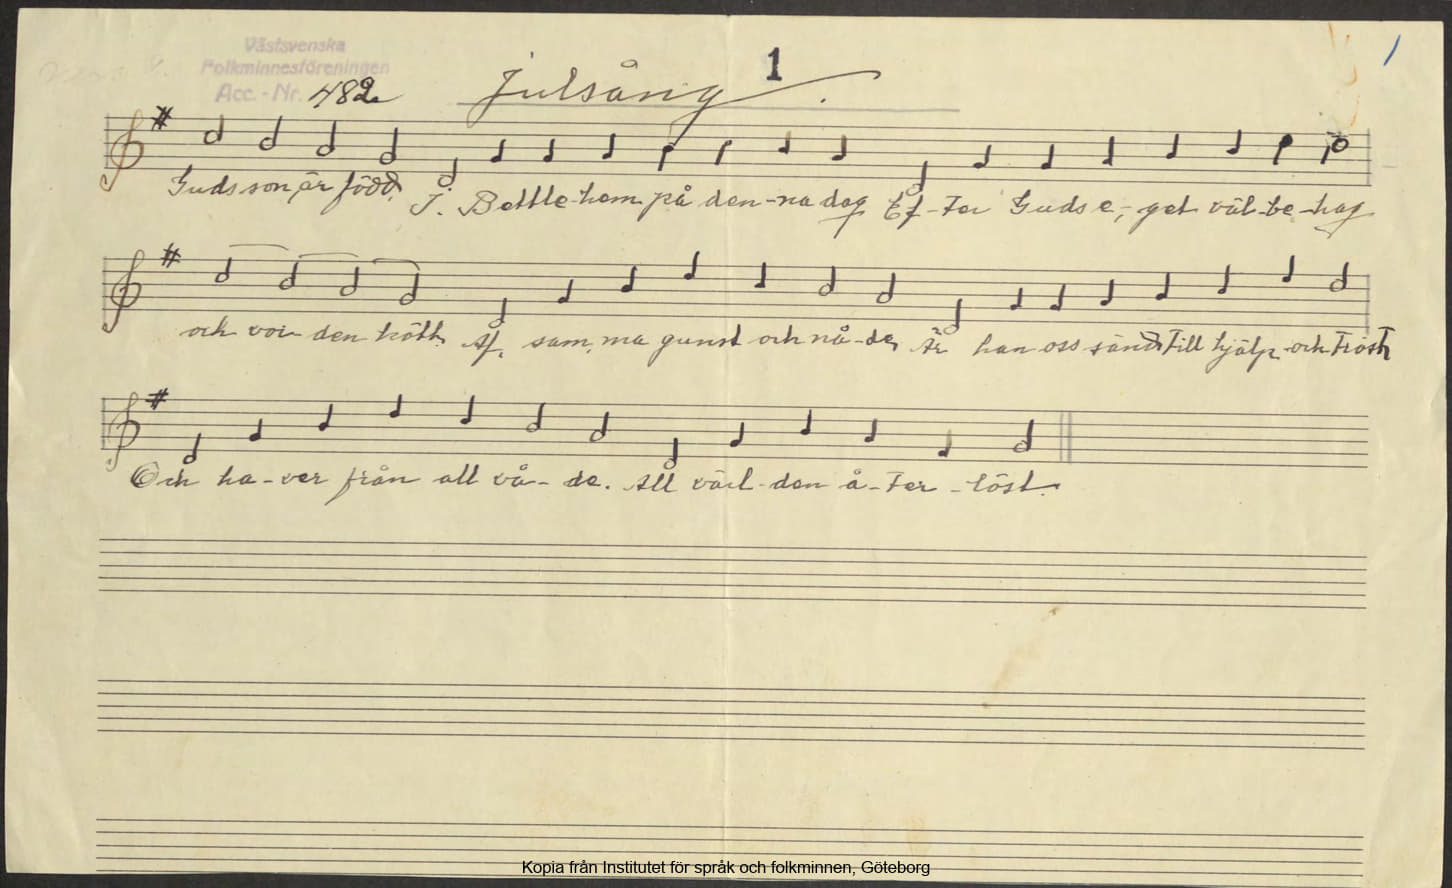 Västsvenska
Folkminnesföreningen
Acc.-Nr. 482
Julsång.
1
Guds son är född. I. Bettle-hem på den-na dag Ef-ter Guds e-get väl-be-hag
och vor den kött Af sam-ma gunst och nå-de, Är han oss sänd till hjälp och tröst
Och ha-ver från all vå-de. All värl-den å-ter-löst.
Kopia från Institutet för språk och folkminnen, Göteborg